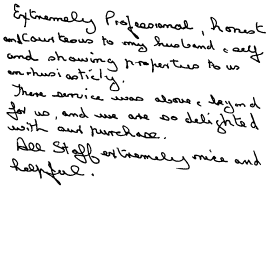 Extremely Professional, honest
and Courteous to my husband & self
and showing properties to us
enthusiasticly.
There service was above & beyond
for us, and we are so delighted
with our purchase.
All Staff extremely nice and
helpful.